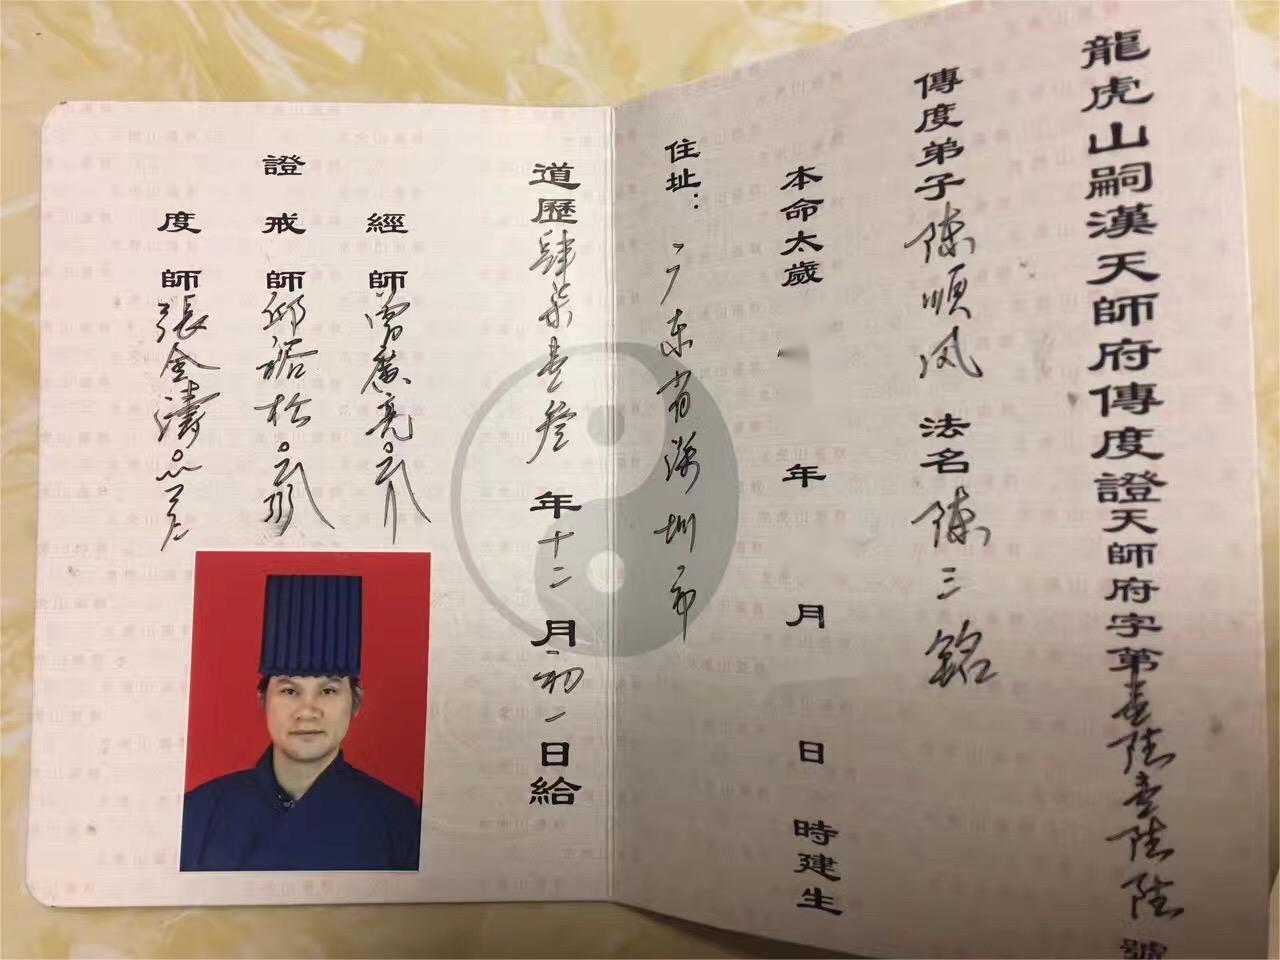 龍虎山嗣漢天師府傳度證天師府字第壹陸壹陸陸號
傳度弟子陈順风 法名陈三銘
本命太歲 年 月 日 時建生
住址：广东省深圳市
道歷肆柒壹叁年十二月初一日給
經師曾廣亮
證戒師邱裕松
度師張金濤